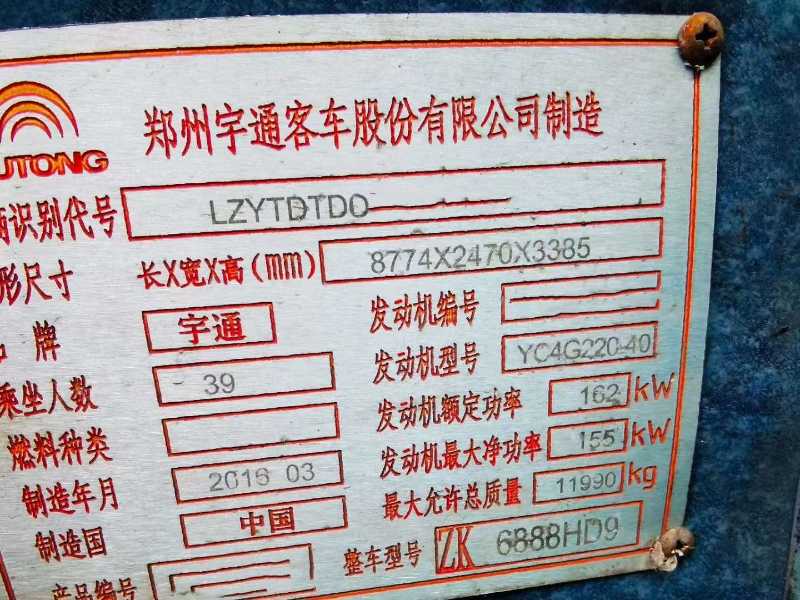 郑州宇通客车股份有限公司制造
UTONG
识别代号 LZYTDTD0
形尺寸 长X宽X高(mm) 8774X2470X3385
牌 宇通 发动机编号
乘坐人数 39 发动机型号 YC4G220-40
燃料种类 发动机额定功率 162 kW
制造年月 2016 03 发动机最大净功率 155 kW
制造国 中国 最大允许总质量 11990 kg
产品编号 整车型号 ZK 6888HD9